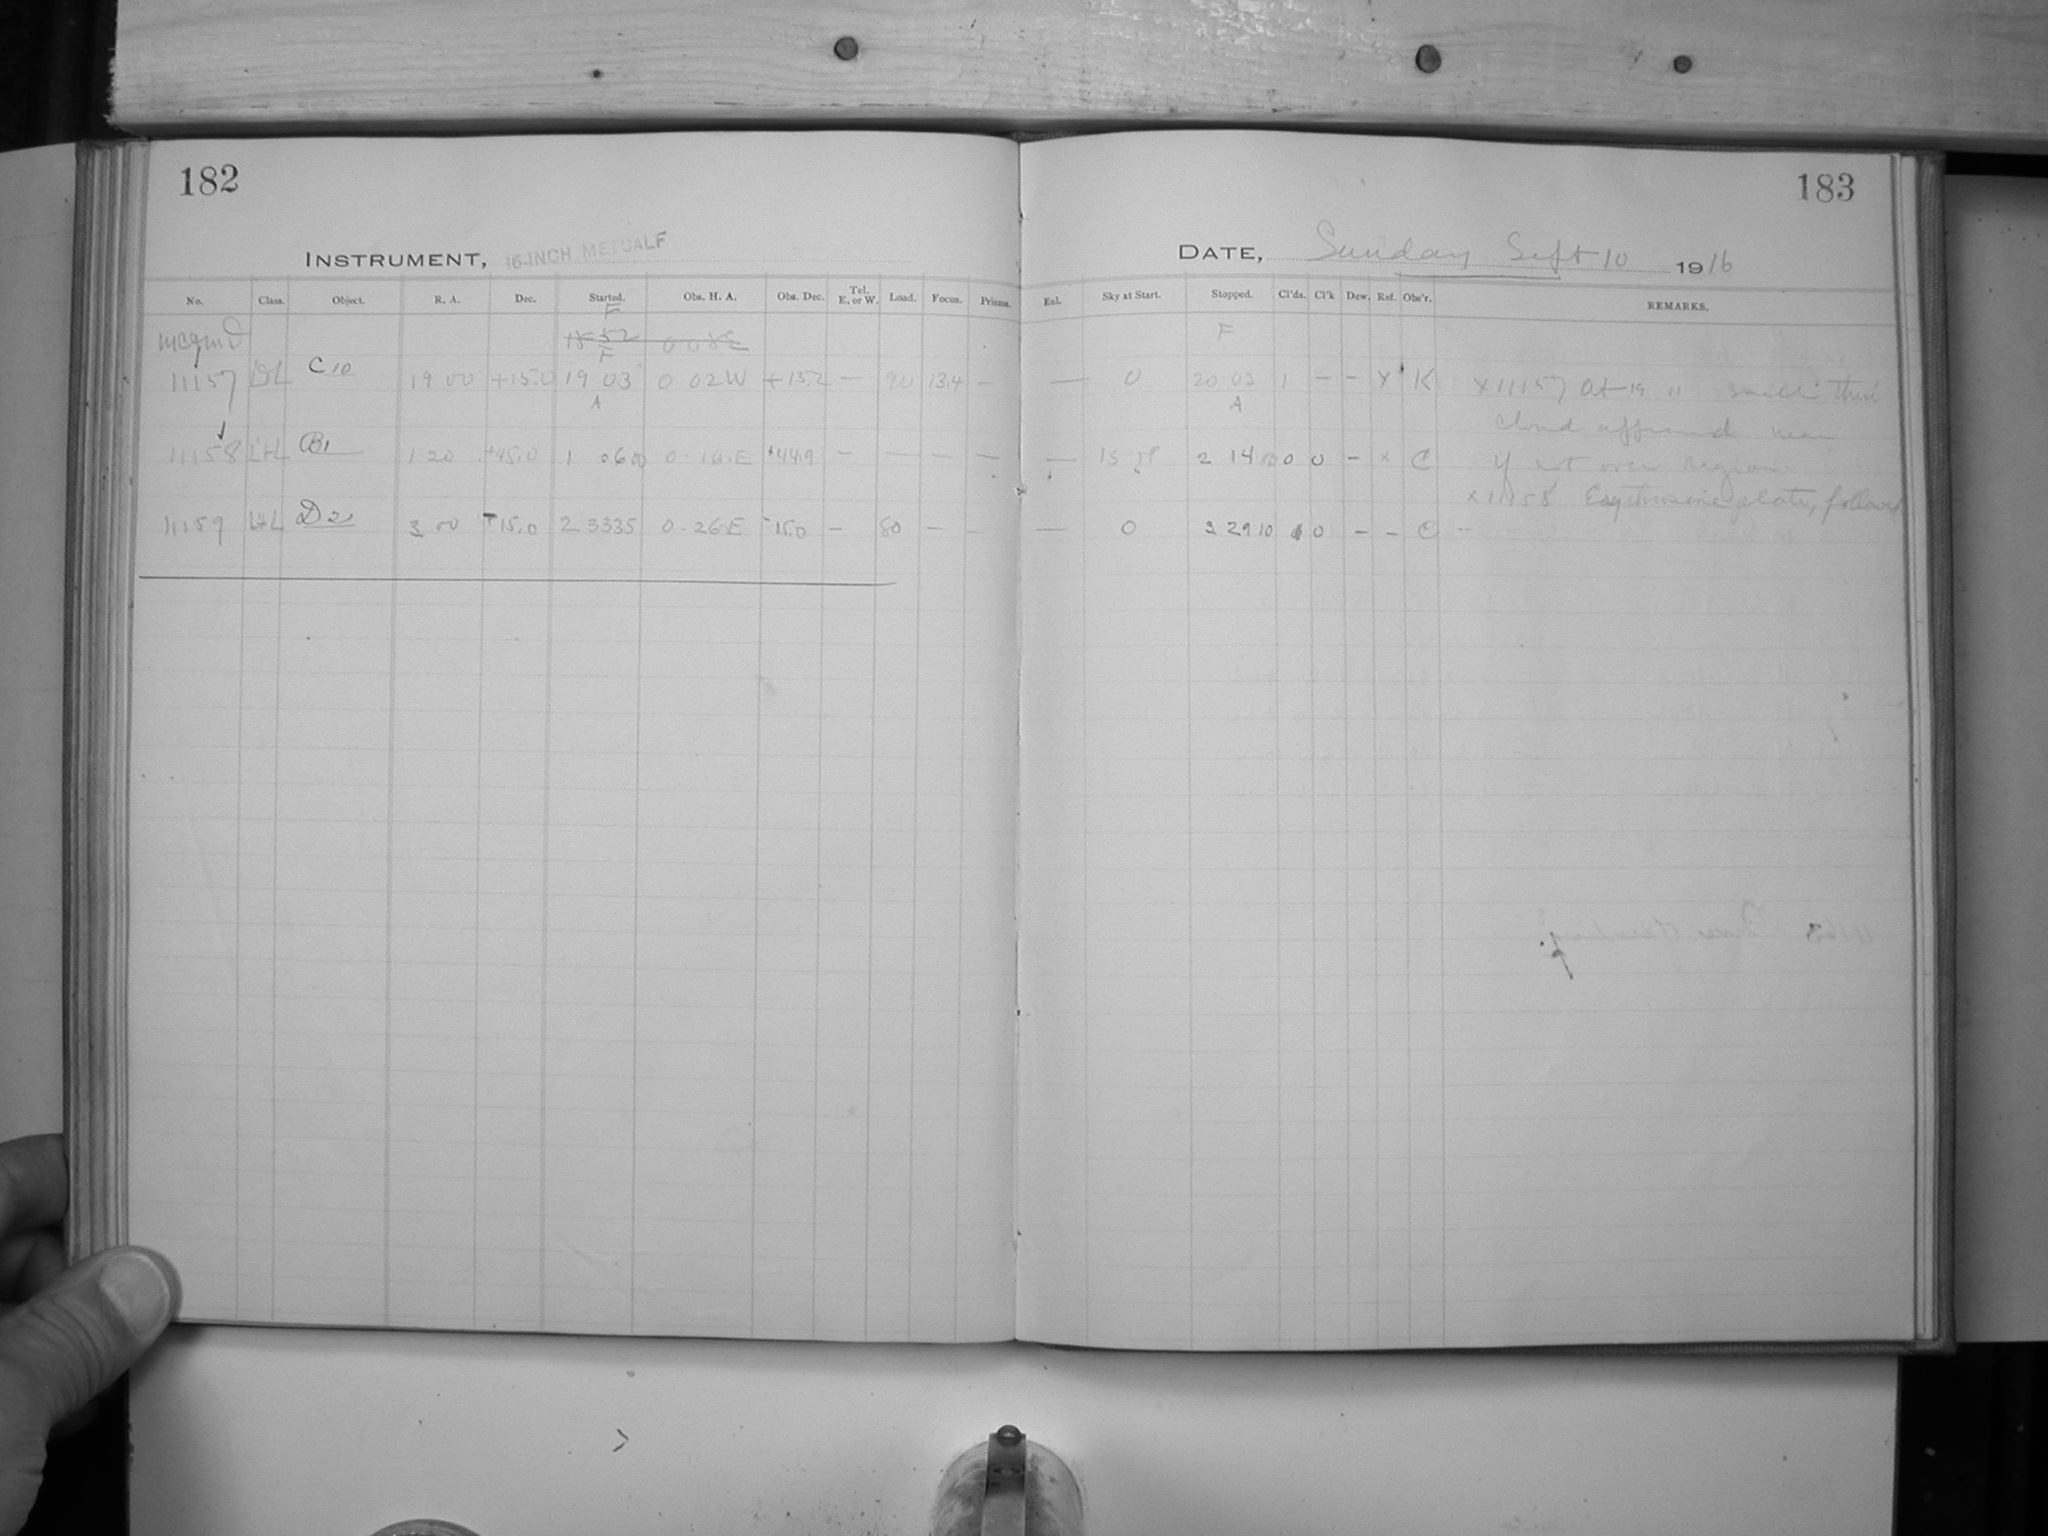 182
183
INSTRUMENT, 16-INCH METCALF
DATE, Sunday Sept 10 1916
No. Class. Object. R. A. Dec. Started. Obs. H. A. Obs. Dec. Tel. E. or W. Load. Focus. Prisms. Enl. Sky at Start. Stopped. Cl'ds. Cl'k Dew. Ref. Obs'r. REMARKS.
F
18 52
F F
11157 C 10 19 00 +15.0 19 03 0 02 W +15.2 — 90 13.4 — — 0 20 03 1 — — x K x 11157 At 19 11 small thin
A A
cloud appeared near
11158 L+L B1 1 20 +45.0 1 06 0·14·E +44.9 — — — — — 2 14 0 0 — x C if not over region
x 11158 plate, follows
11159 L+L D2 3 00 15.0 2 33 35 0·26·E 15.0 — 80 — — — 0 3 29 10 0 — — C —